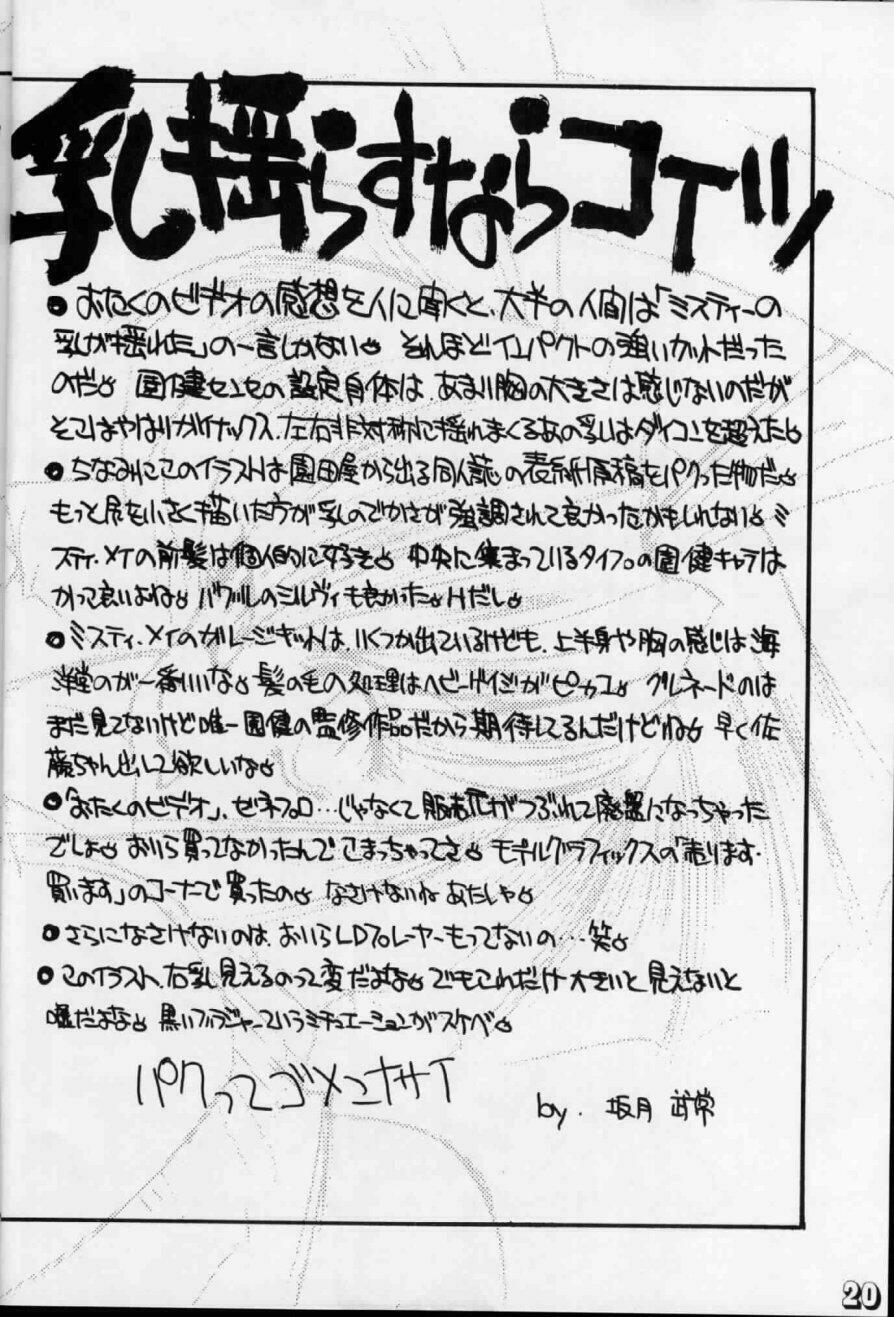 乳揺らすならコイツ
●おたくのビデオの感想を人に聞くと、大半の人間は「ミスティーの
乳が揺れた」の一言しかない。それほどインパクトの強いカットだった
のだ。園健センセの設定自体は、あまり胸の大きさは感じないのだが
そこはやはりガイナックス、左右非対称に揺れまくるあの乳はダイコンを超えた。
●ちなみにこのイラストは園田屋から出る同人誌の表紙原稿をパクった物だ。
もっと尻を小さく描いた方が乳のでかさが強調されて良かったかもしれない。ミ
スティ・メイの前髪は個人的に好き。中央に集まっているタイプの園健キャラは
かって良いよね。バブルのシルヴィも良かった。Hだし。
●ミスティ・メイのガレージキットは、いくつか出ているけども、上半身や胸の感じは海
洋堂のが一番いいな。髪の毛の処理はヘビーゲイジがピカ一。グレネードのは
まだ見てないけど唯一園健の監修作品だから期待してるんだけどね。早く佐
藤ちゃん出して欲しいな。
●「おたくのビデオ」、ゼネプロ…じゃなくて販売元がつぶれて廃盤になっちゃった
でしょ。おいら買ってなかったんでこまっちゃってさ。モデルグラフィックスの「売ります・
買います」のコーナーで買ったの。なさけないね あたしゃ。
●さらになさけないのは、おいらLDプレーヤーもってないの…笑。
●このイラスト、右乳見えるのって変だよな。でもこれだけ大きいと見えないと
嘘だよな。黒いブラジャーっていうシチュエーションがスケベ。
パクってゴメンナサイ
by. 坂月 武常
20